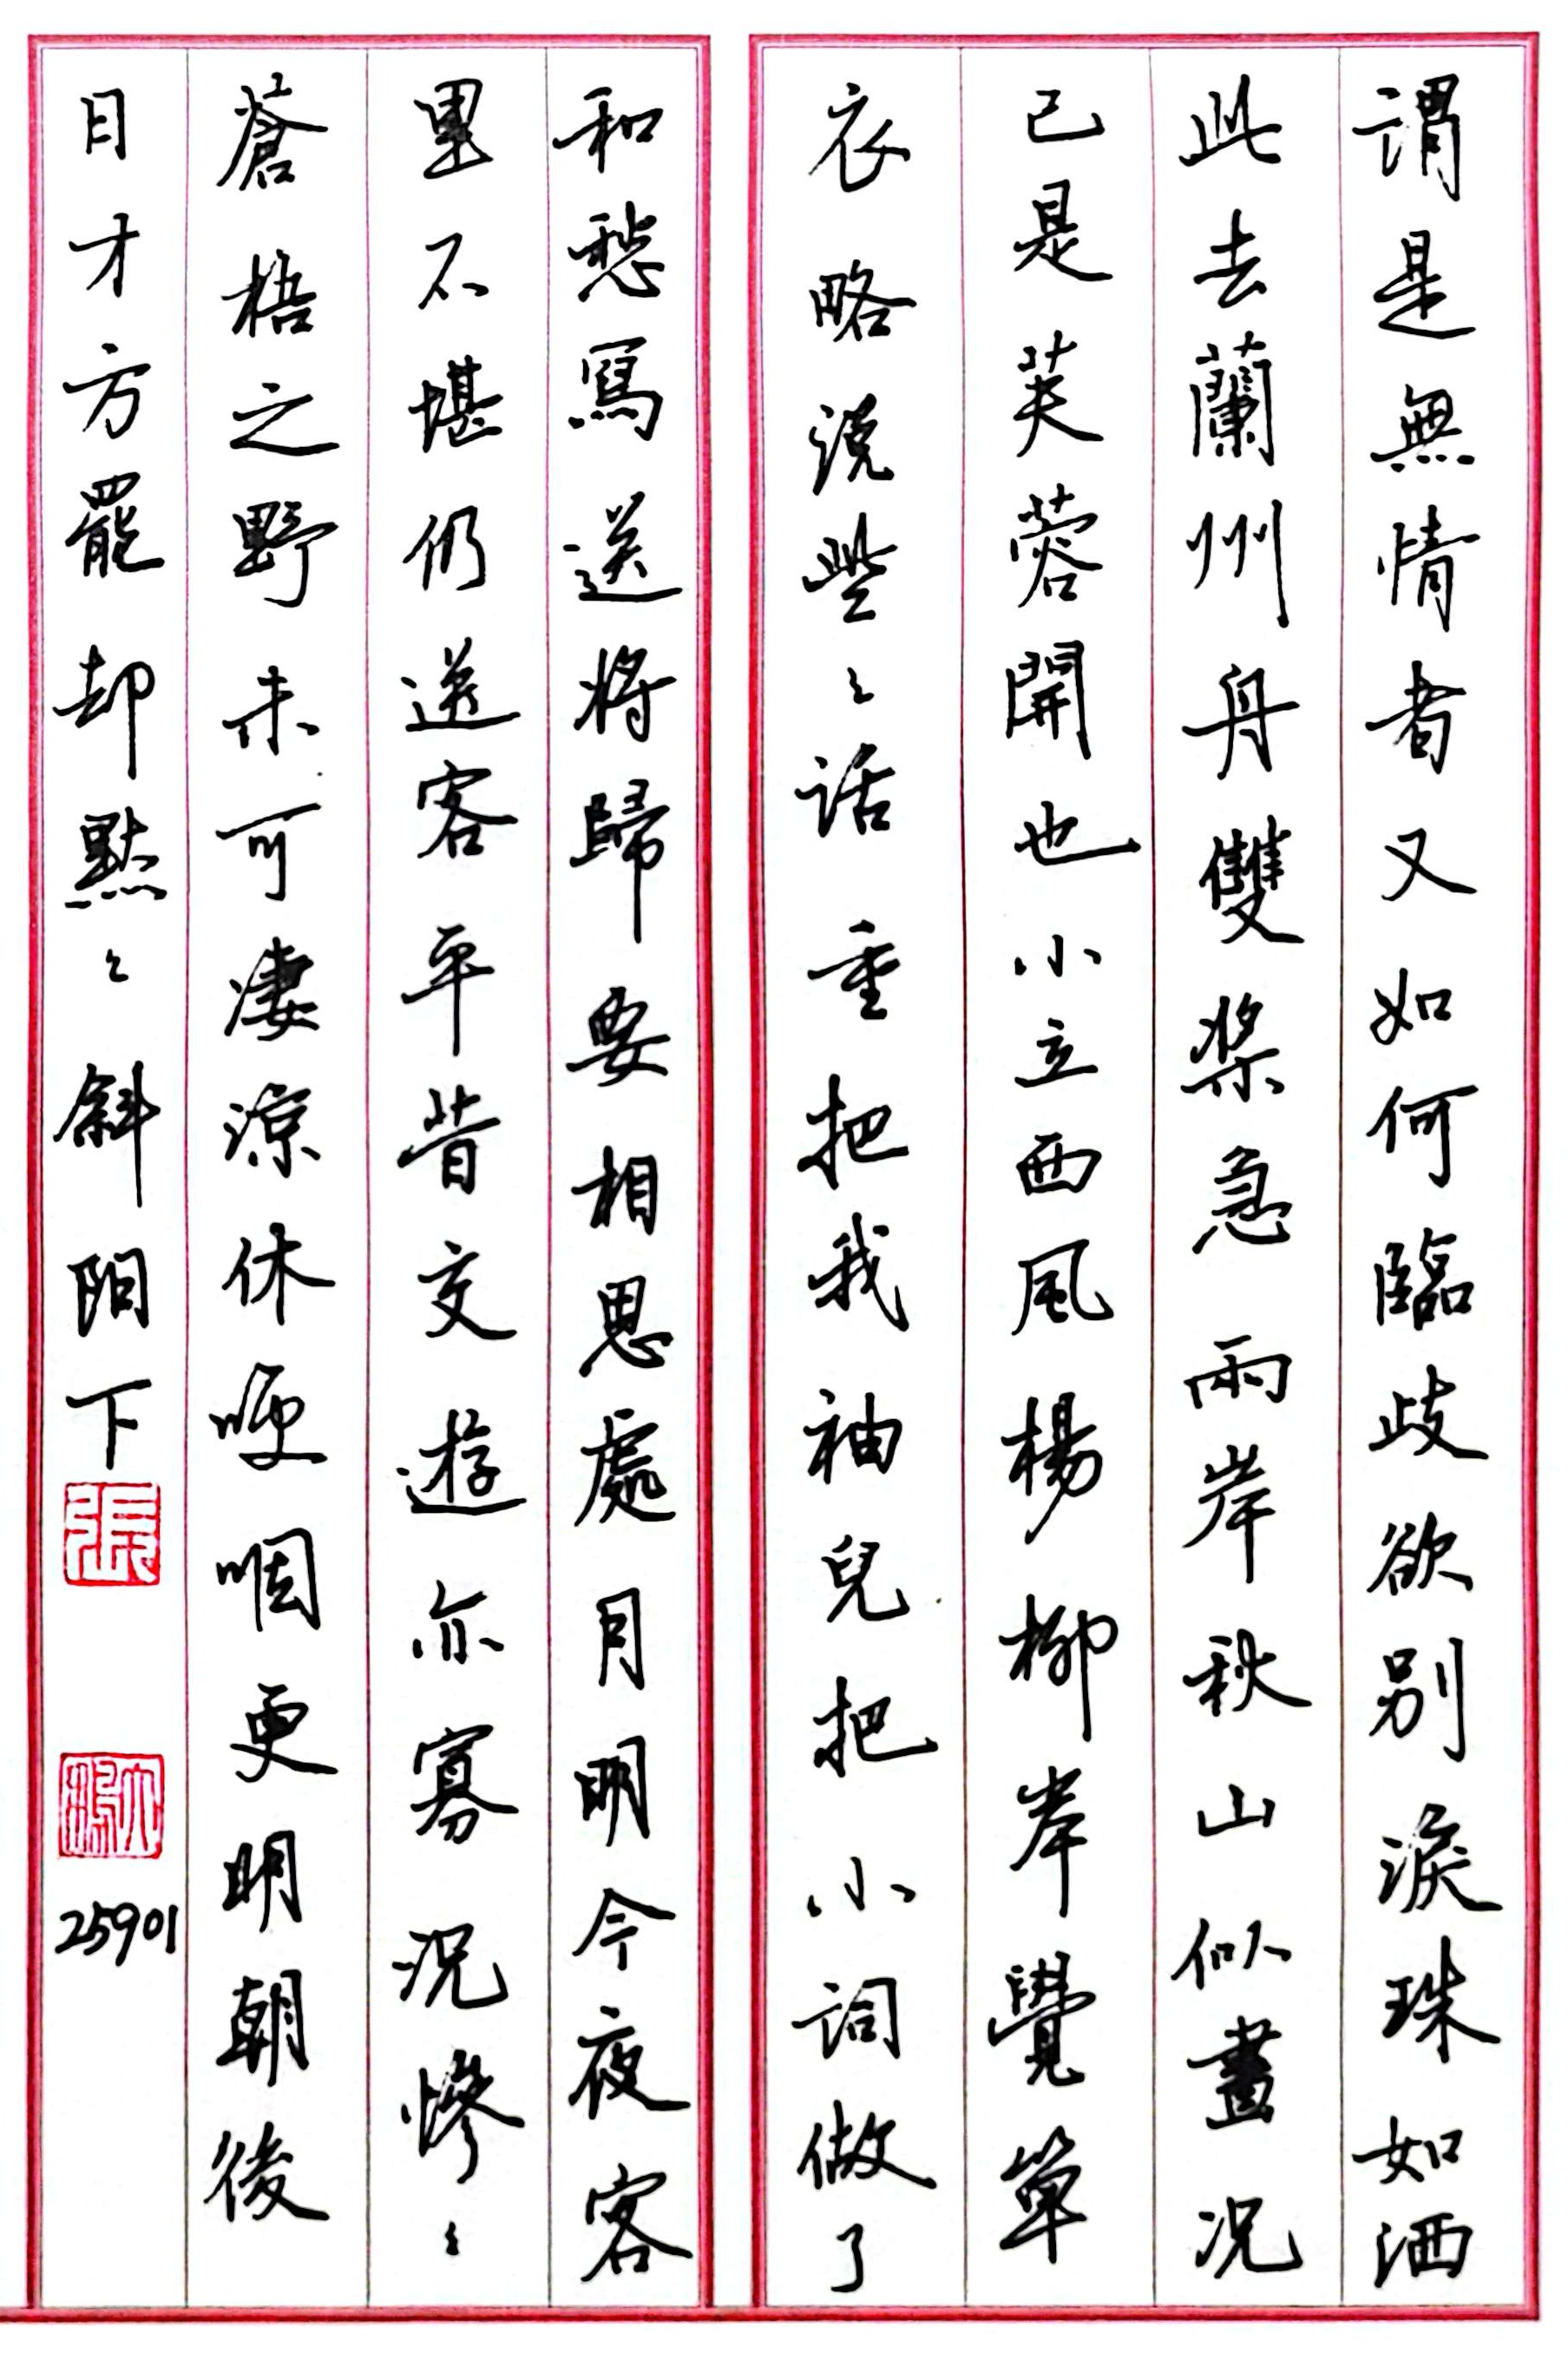 謂是無情者又如何臨歧欲别淚珠如洒
此去蘭州舟雙槳急兩岸秋山似畫况
已是芙蓉開也小立西風楊柳岸覺單
衣略説些々話重把我袖兒把小詞做了
和愁寫送將歸要相思處月明今夜客
裏不堪仍送客平昔交遊亦寡况慘々
蒼梧之野未可凄涼休哽咽更明朝後
日才方罷却黙々斜陽下
張
25901